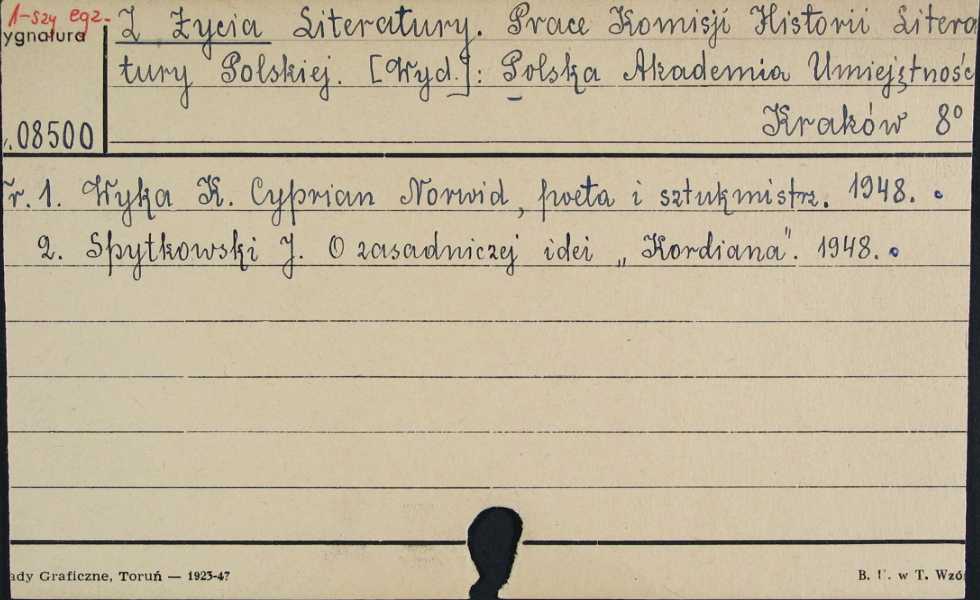 1-szy egz.
ygnatura
Z Życia Literatury. Prace Komisji Historii Litera
tury Polskiej. [Wyd.]: Polska Akademia Umiejętnośc
08500
Kraków 8°
r. 1. Wyka K. Cyprian Norwid, poeta i sztukmistrz. 1948.
2. Spytkowski J. O zasadniczej idei „Kordiana". 1948.
ady Graficzne, Toruń — 1923-47
B. U. w T. Wzó